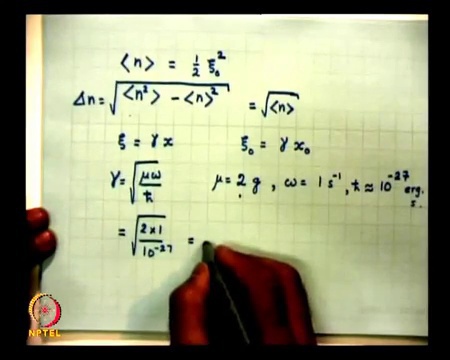 ⟨n⟩ = 1/2 ξ₀²
Δn = √(⟨n²⟩ - ⟨n⟩²) = √⟨n⟩
ξ = γ x    ξ₀ = γ x₀
γ = √(μω/ħ)    μ = 2 g , ω = 1 s⁻¹, ħ ≈ 10⁻²⁷ erg. s.
= √(2 x 1/10⁻²⁷) =
NPTEL